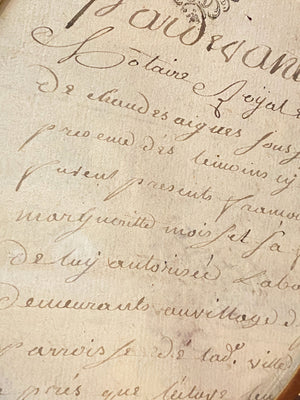 Pardevant
Notaire Royal
De chaudesaigues sous
presence des temoins
furent presents francois
margueritte moisset sa
De luy autorisée Labo
demeurants au village d
parroisse de lad. ville
après que